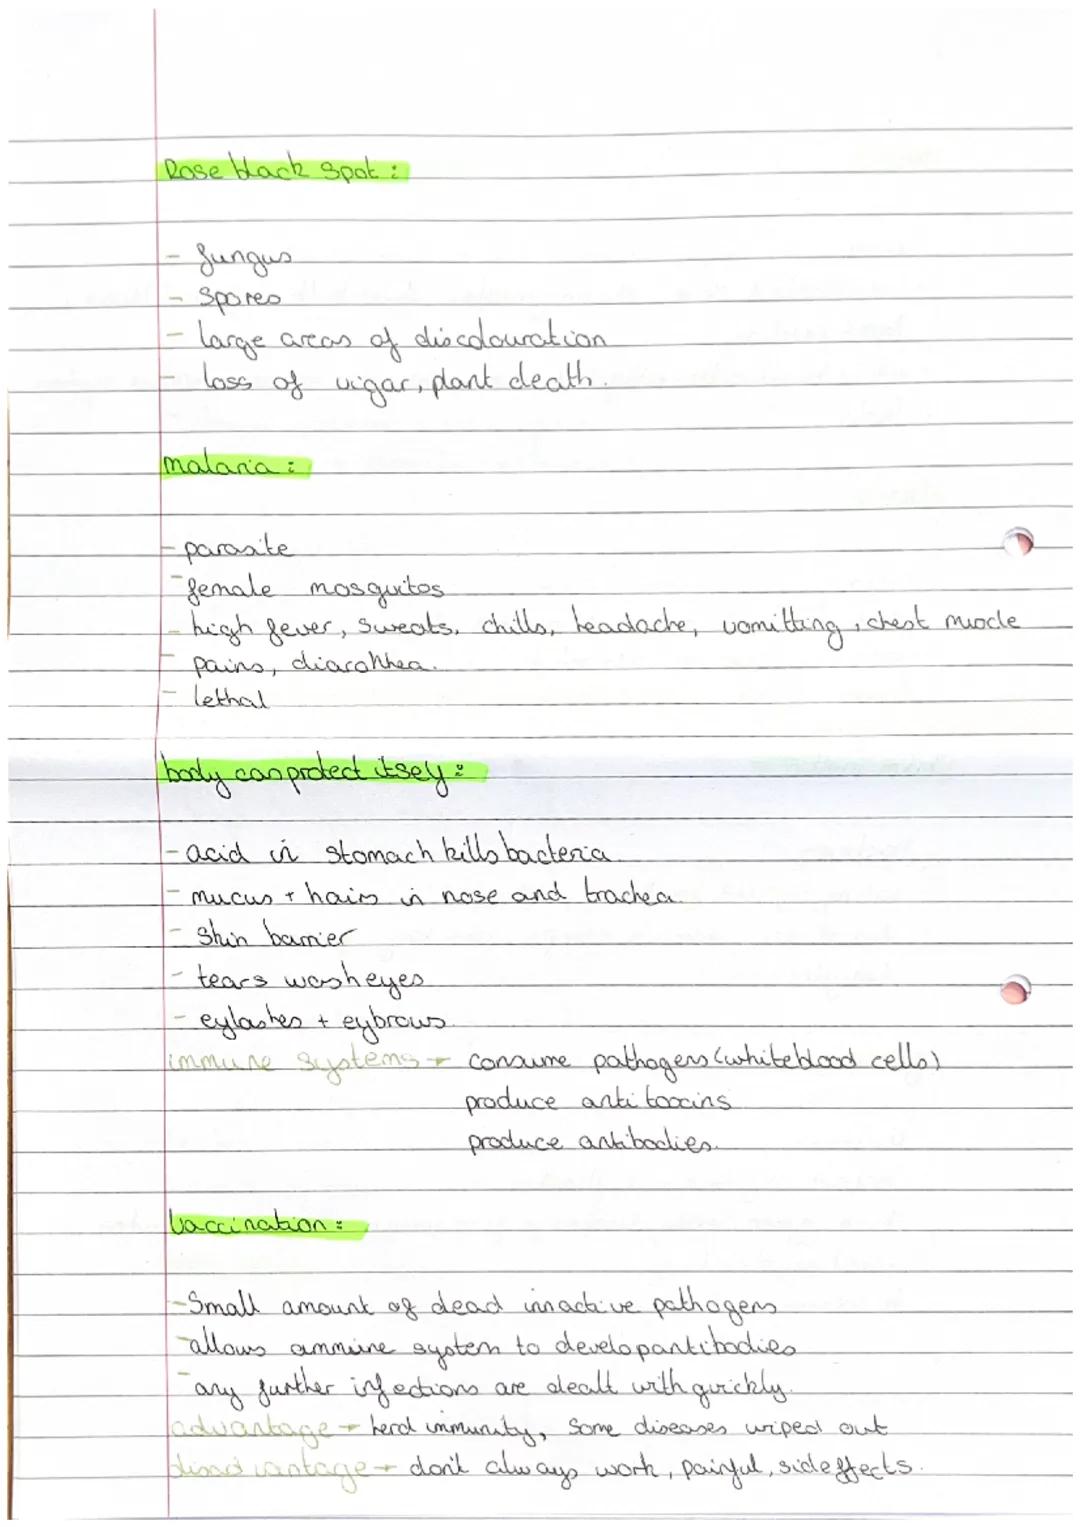 Rose black spot :
- fungus
- spores
- large areas of discolouration
- loss of vigar, plant death.
malaria :
- parasite
- female mosquitos
- high fever, sweats, chills, headache, vomitting, chest muscle
- pains, diarohhea.
- lethal
body can protect itself :
- acid in stomach kills bacteria
- mucus + hairs in nose and trachea.
- Skin barrier
- tears wash eyes
- eylashes + eybrows.
immune systems → consume pathogens (whiteblood cells)
produce antitoxins
produce antibodies.
Vaccination :
- Small amount of dead innactive pathogens
- allows ammune system to develop antibodies
- any further infections are dealt with quickly.
advantage → herd immunity, some diseases wiped out
disadvantage → don't always work, painful, side effects.